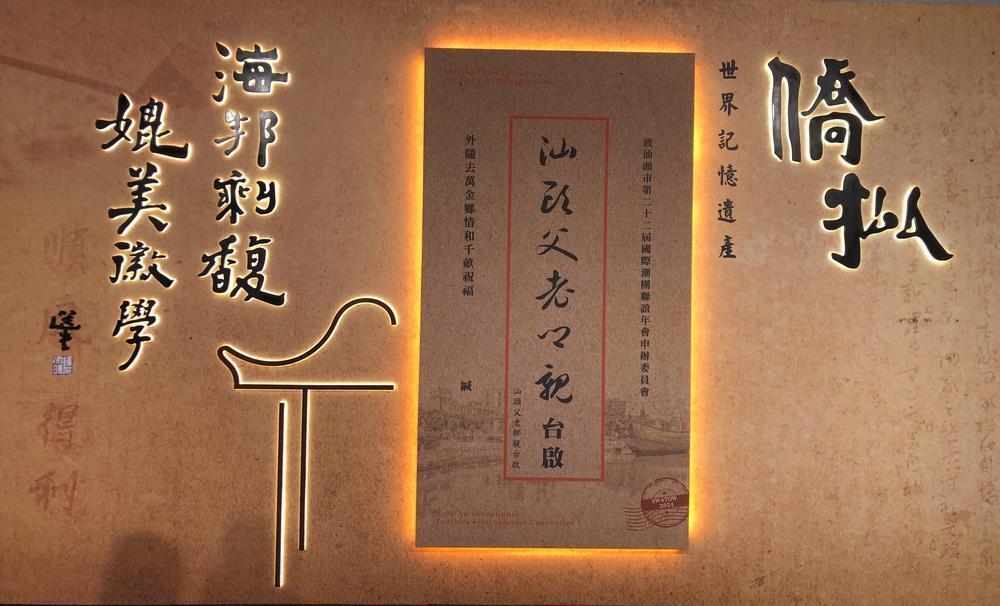 僑批
世界記憶遺產
致汕頭市第二十二屆國際潮團聯誼年會申辦委員會
汕頭父老鄉親台啟
汕頭父老鄉親台啟
外隨去萬金鄉情和千畝祝福
緘
Hold an exceptional
Teochew International Convention
SWATOW
2024
海邦剩馥
媲美徽學
選堂
順風得利